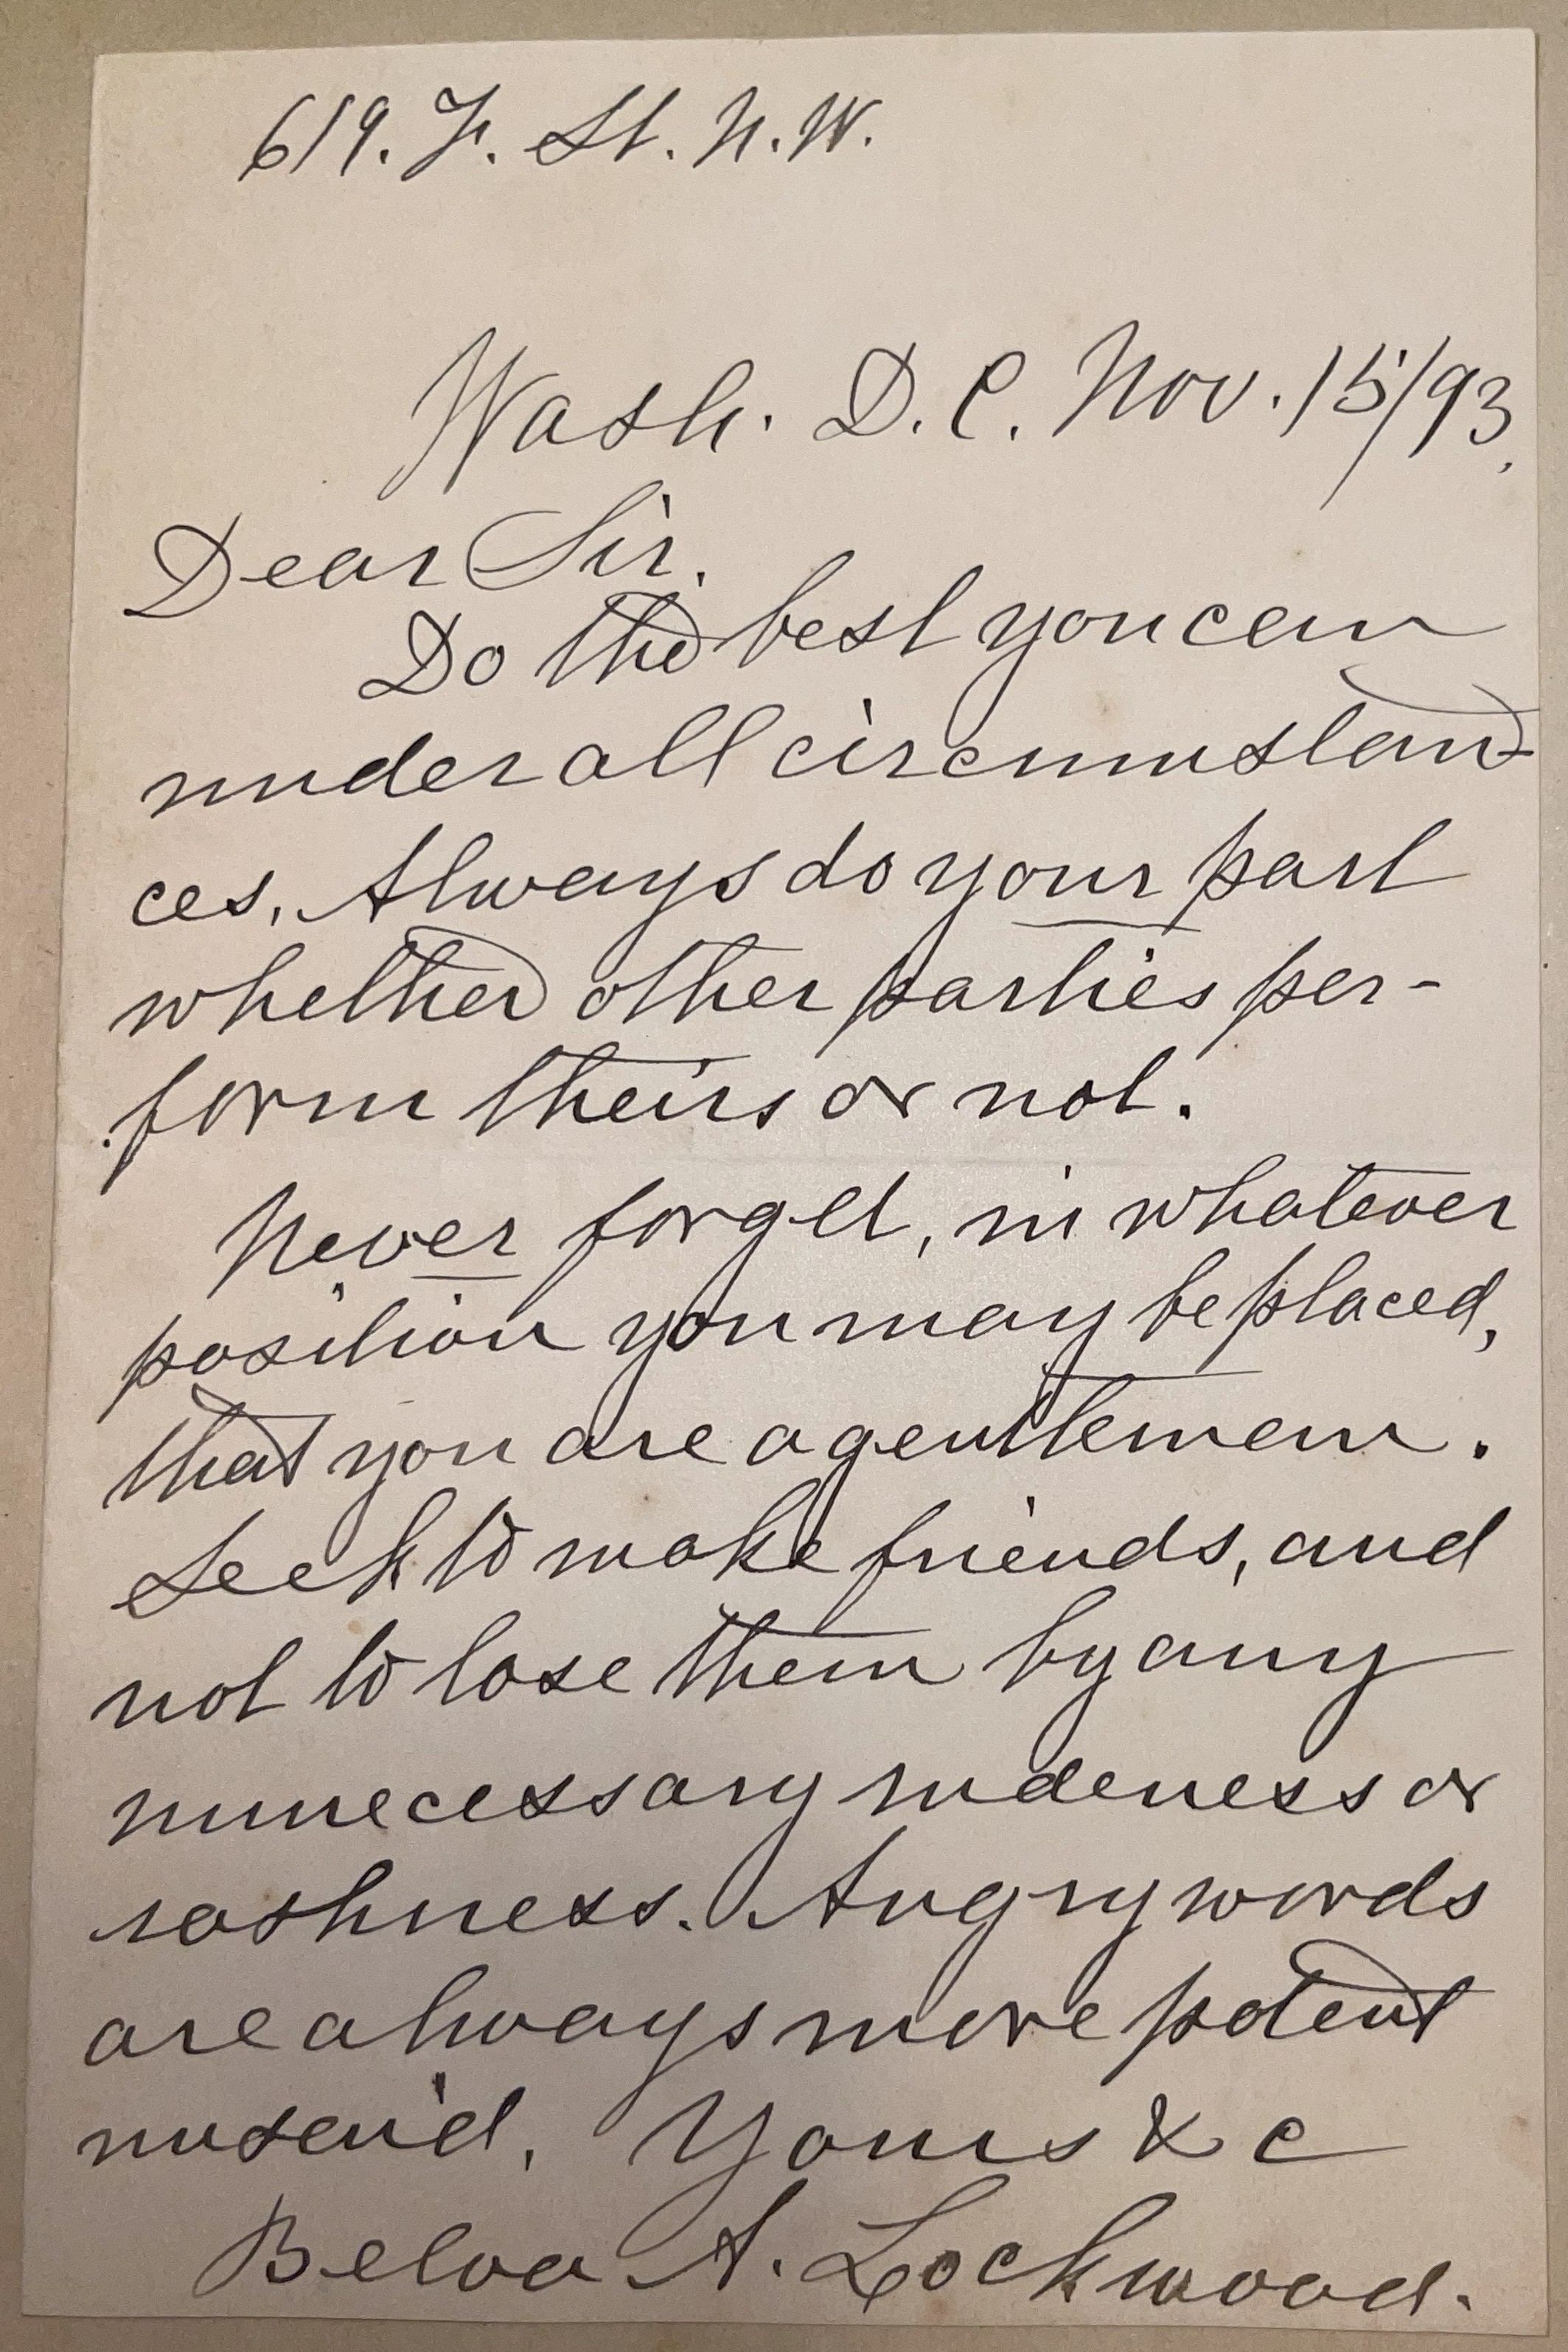 619. F. St. N.W.
Wash. D.C. Nov. 15/93.
Dear Sir.
Do the best you can
under all circumstan-
ces. Always do your part
whether other parties per-
form theirs or not.
Never forget, in whatever
position you may be placed,
that you are a gentleman.
Seek to make friends, and
not to lose them by any
unnecessary rudeness or
rashness. Angry words
are always more potent
unsaid. Yours &c
Belva A. Lockwood.